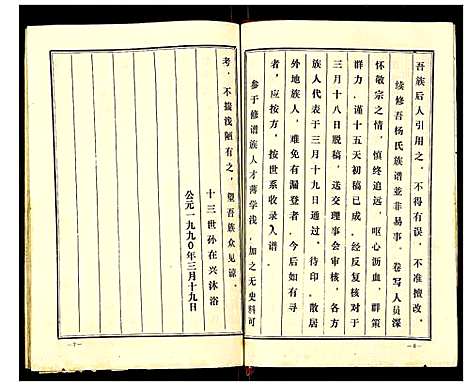 吾族后人引用之，不得有误，不准擅改。
续修吾杨氏族谱並非易事。卷写人员深
怀敬宗之情，慎终追远，呕心沥血，群策
群力。谨十五天初稿已成。经反复核对于
三月十八日脱稿，送交理事会审核，各方
族人代表于三月十九日通过，待印。散居
外地族人，难免有漏登者。今后若有发现
者，应按方，按世系收录入谱。
参于修谱族人才薄学浅，加之无史料可
-6-
考，不拢浅陋有之，望吾族众见谅。
十三世孙在兴沐浴
公元一九九0年三月十九日
-7-